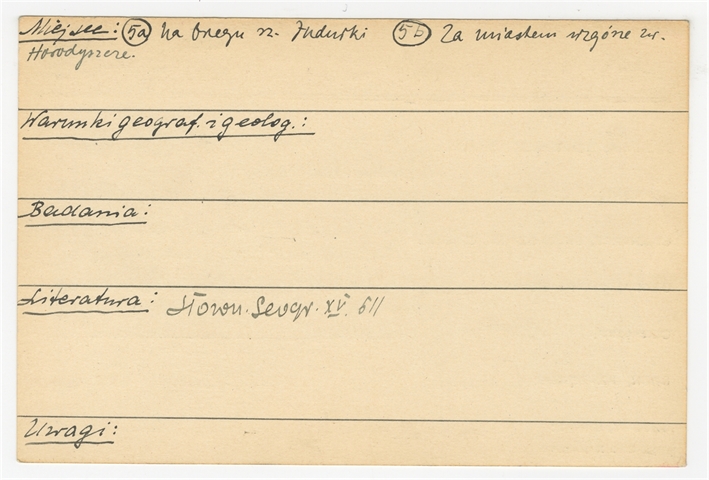 Miejsce: 5a na brzegu rz. Indurki 5b Za miastem wzgórze zw.
Horodyszcze.
Warunki geograf. i geolog.:
Badania:
Literatura: Słown. Geogr. XV. 611
Uwagi: